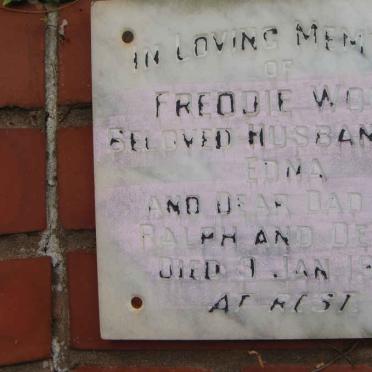 IN LOVING MEM
OF
FREDDIE WO
BELOVED HUSBAN
EDNA
AND DEAR DAD
RALPH AND DE
DIED 9 JAN 1
AT REST